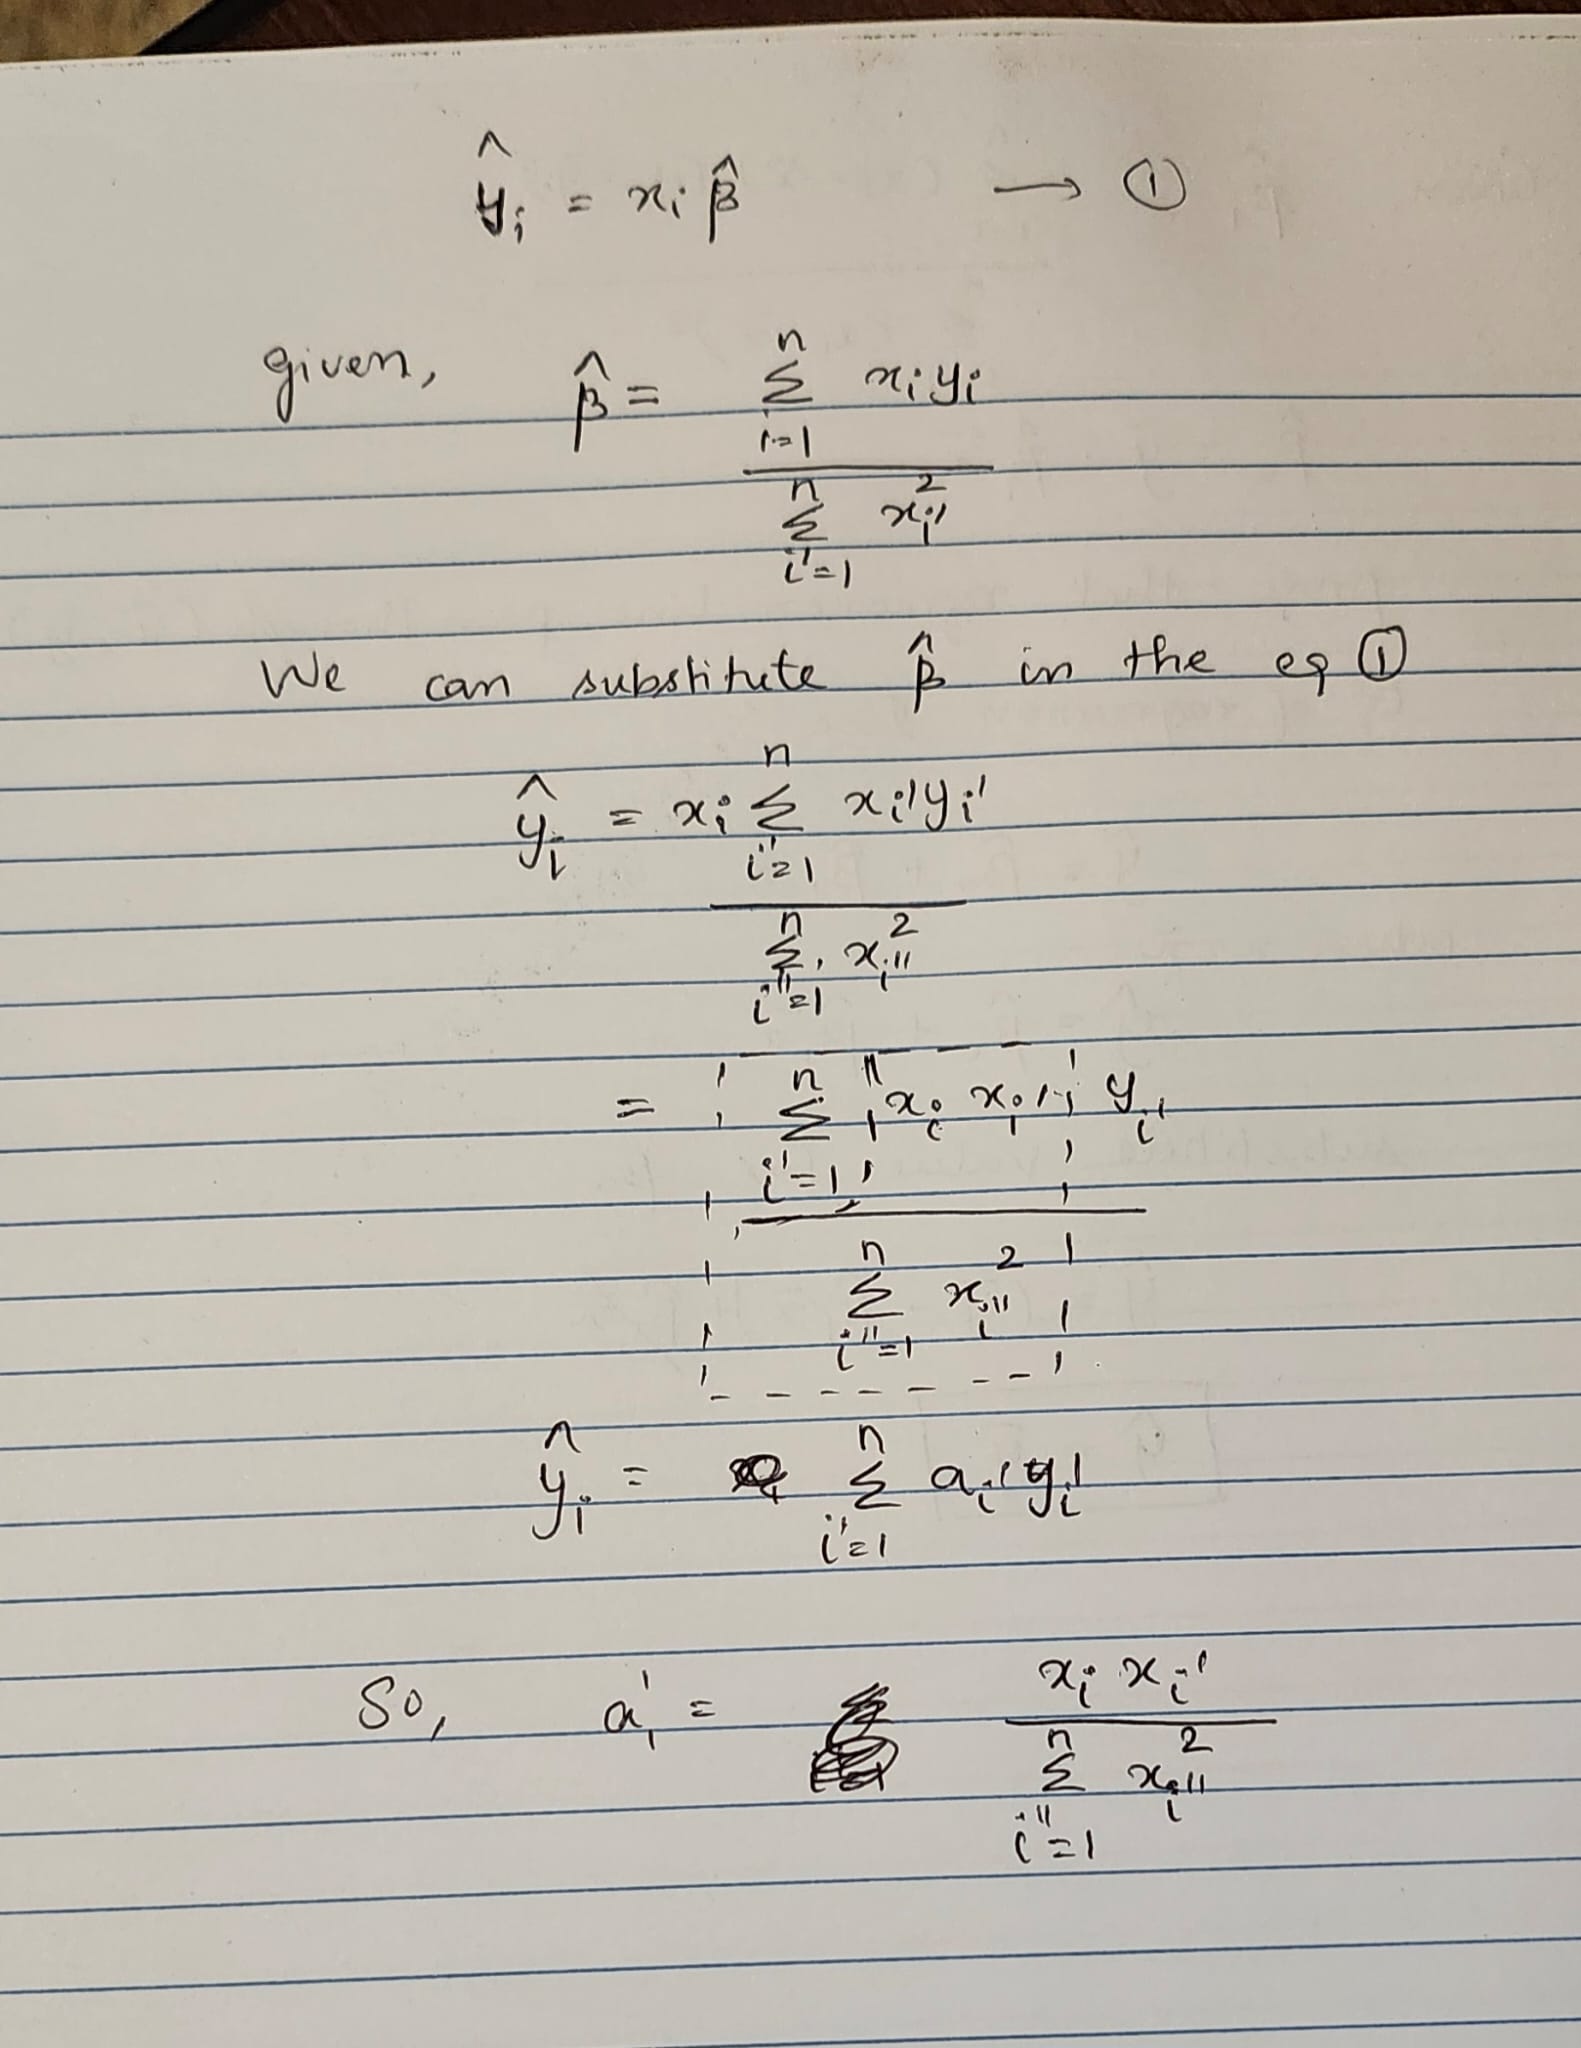 ŷᵢ = xᵢ β̂ → ①
given, β̂ = \frac{\sum_{i=1}^{n} x_i y_i}{\sum_{i'=1}^{n} x_{i'}^2}
We can substitute β̂ in the eq ①
ŷᵢ = \frac{x_i \sum_{i'=1}^{n} x_{i'} y_{i'}}{\sum_{i''=1}^{n} x_{i''}^2}
= \frac{\sum_{i'=1}^{n} x_i x_{i'} y_{i'}}{\sum_{i''=1}^{n} x_{i''}^2}
ŷᵢ = \sum_{i'=1}^{n} a_{i'} y_{i'}
So, a_i' = \frac{x_i x_{i'}}{\sum_{i''=1}^{n} x_{i''}^2}